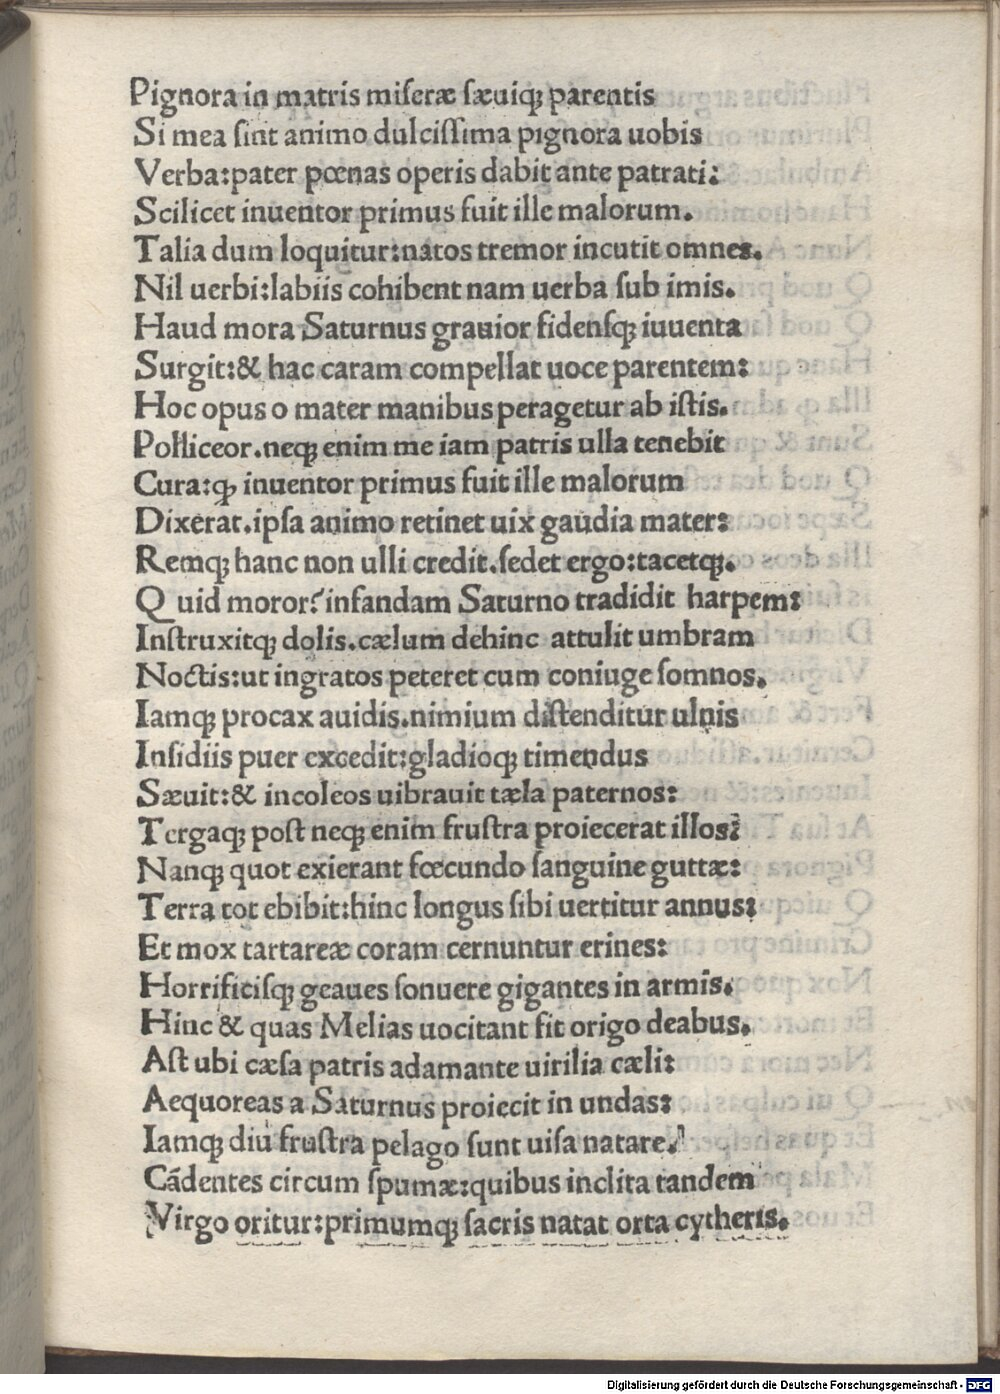 Pignora in matris miſeræ ſæuiqꝫ parentis
Si mea ſint animo dulciſſima pignora uobis
Verba:pater pœnas operis dabit ante patrati:
Scilicet inuentor primus fuit ille malorum.
Talia dum loquitur:natos tremor incutit omnes.
Nil uerbi:labiis cohibent nam uerba ſub imis.
Haud mora Saturnus grauior fidenſqꝫ iuuenta
Surgit:& hac caram compellat uoce parentem:
Hoc opus o mater manibus peragetur ab iſtis.
Polliceor.neqꝫ enim me iam patris ulla tenebit
Cura:ꝙ inuentor primus fuit ille malorum
Dixerat.ipſa animo retinet uix gaudia mater:
Remqꝫ hanc non ulli credit.ſedet ergo:tacetqꝫ.
Q uid moror?infandam Saturno tradidit harpem:
Inſtruxitqꝫ dolis.cælum dehinc attulit umbram
Noctis:ut ingratos peteret cum coniuge ſomnos.
Iamqꝫ procax auidis.nimium diſtenditur ulnis
Inſidiis puer excedit:gladioqꝫ timendus
Sæuit:& incoleos uibrauit tæla paternos:
Tergaqꝫ poſt neqꝫ enim fruſtra proiecerat illos:
Nanqꝫ quot exierant fœcundo ſanguine guttæ:
Terra tot ebibit:hinc longus ſibi uertitur annus:
Et mox tartareæ coram cernuntur erines:
Horrificiſqꝫ geaues ſonuere gigantes in armis.
Hinc & quas Melias uocitant fit origo deabus.
Aſt ubi cæſa patris adamante uirilia cæli:
Aequoreas a Saturnus proiecit in undas:
Iamqꝫ diu fruſtra pelago ſunt uiſa natare.
Cādentes circum ſpumæ:quibus inclita tandem
Virgo oritur:primumqꝫ ſacris natat orta cytheris.
Digitalisierung gefördert durch die Deutsche Forschungsgemeinschaft - DFG